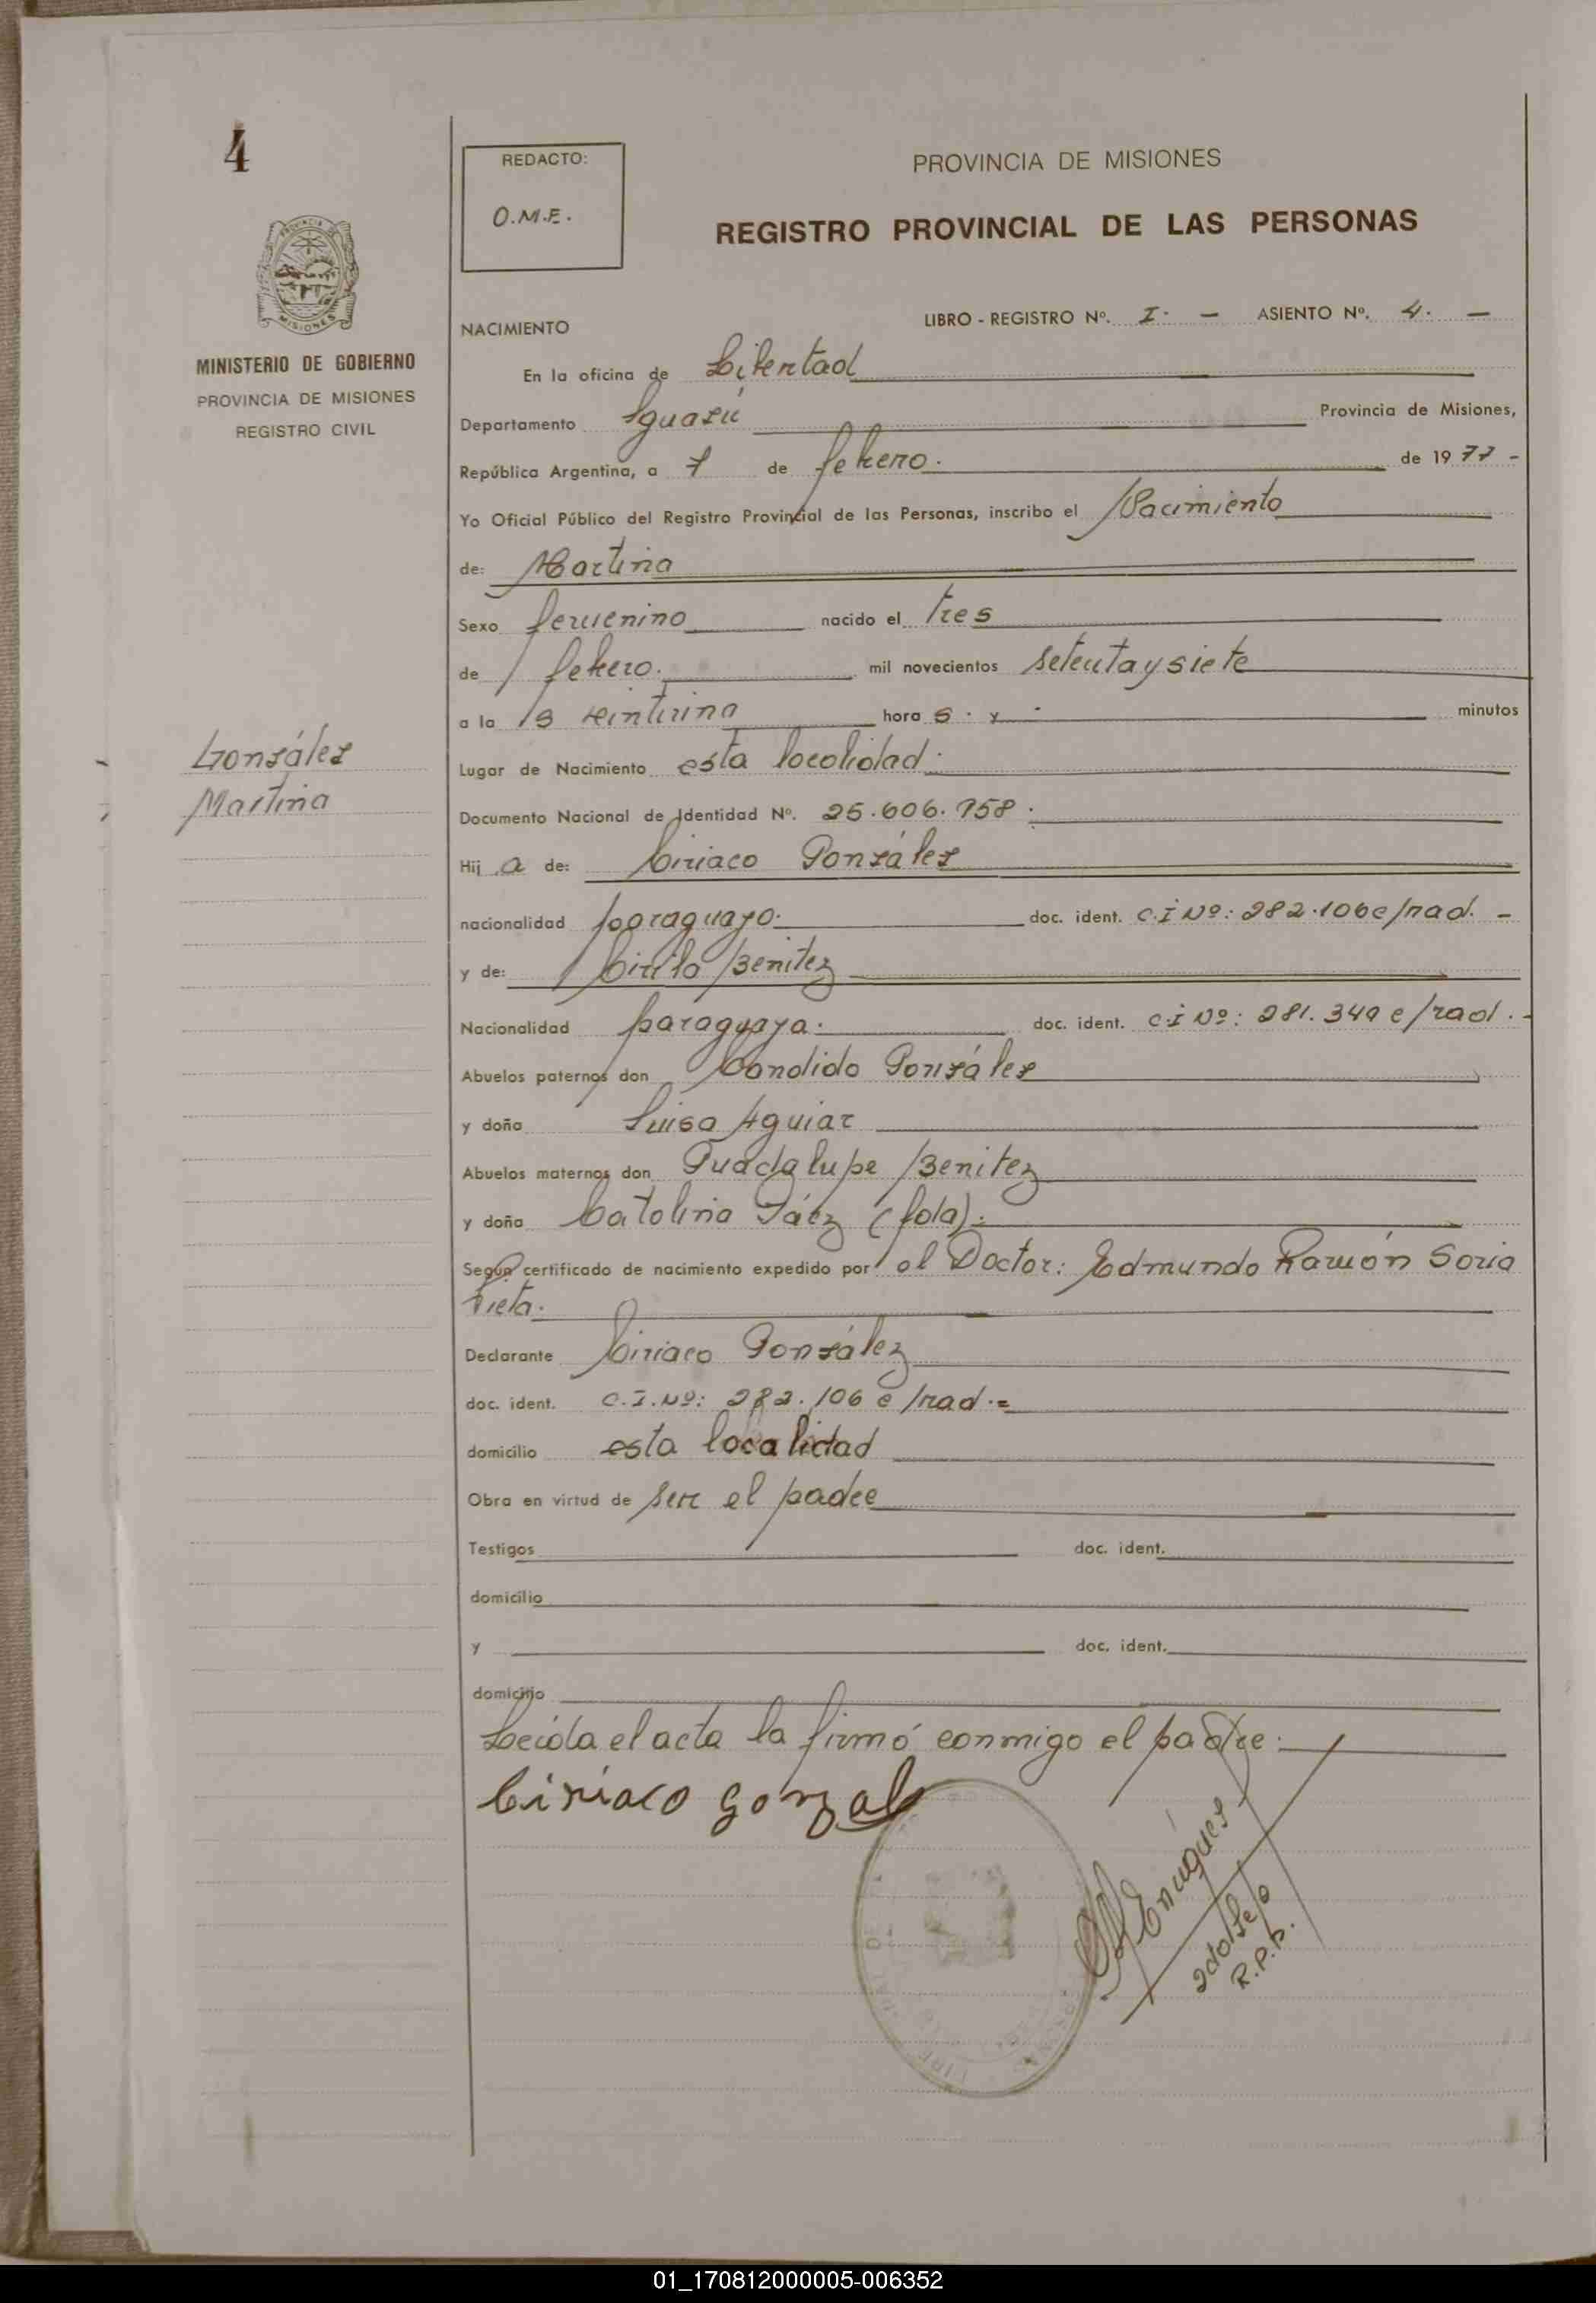 4
REDACTO:
O.M.E.
PROVINCIA DE MISIONES
REGISTRO PROVINCIAL DE LAS PERSONAS
MINISTERIO DE GOBIERNO
PROVINCIA DE MISIONES
REGISTRO CIVIL
NACIMIENTO
LIBRO - REGISTRO Nº. I. - ASIENTO Nº. 4. -
En la oficina de Libertad
Departamento Iguazú Provincia de Misiones,
República Argentina, a 7 de febrero. de 1977 -
Yo Oficial Público del Registro Provincial de las Personas, inscribo el Nacimiento
de: Martina
Sexo femenino nacido el tres
de febrero. mil novecientos setenta y siete
a la s hora s. y - minutos
González
Martina
Lugar de Nacimiento esta localidad.
Documento Nacional de Identidad Nº. 25.606.958.
Hij a de: Ciriaco González
nacionalidad paraguayo. doc. ident. C.I Nº: 282.106 e/rad. -
y de: Benitez
Nacionalidad paraguaya. doc. ident. C.I Nº: 281.349 e/rad. -
Abuelos paternos don Candido González
y doña Luisa Aguiar
Abuelos maternos don Guadalupe Benitez
y doña Catalina Báez (fda).
Según certificado de nacimiento expedido por el Doctor: Edmundo Ramón Soria
Vieta.
Declarante Ciriaco González
doc. ident. C.I. Nº: 282.106 e/rad.=
domicilio esta localidad
Obra en virtud de ser el padre
Testigos doc. ident.
domicilio
y doc. ident.
domicilio
Leída el acta la firmó conmigo el padre.
Ciriaco Gonzal
R.P.P.
01_170812000005-006352